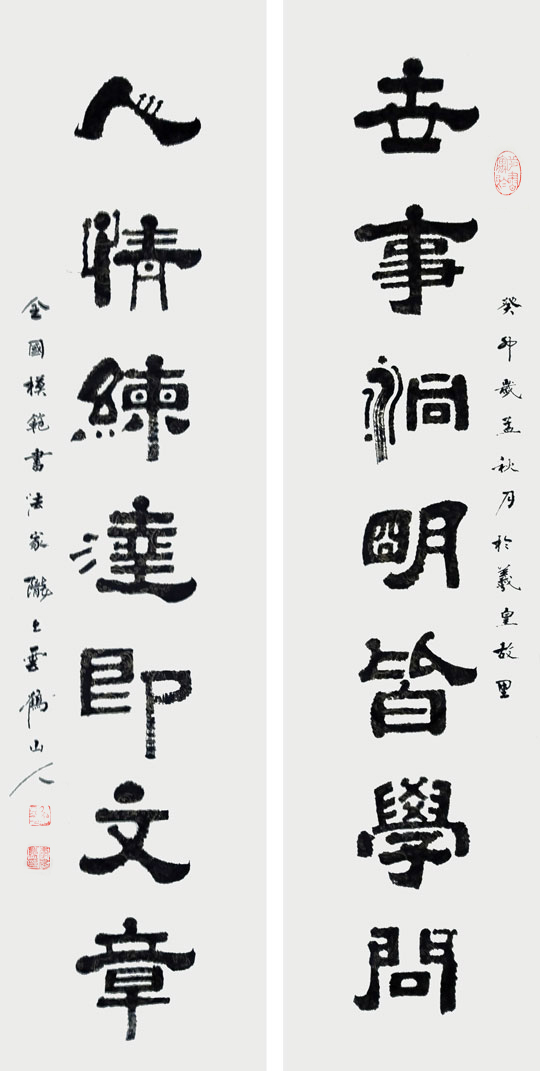 癸卯歲孟秋月於羲皇故里
世事洞明皆學問
人情練達即文章
全國模範書法家隴上雲鶴山人